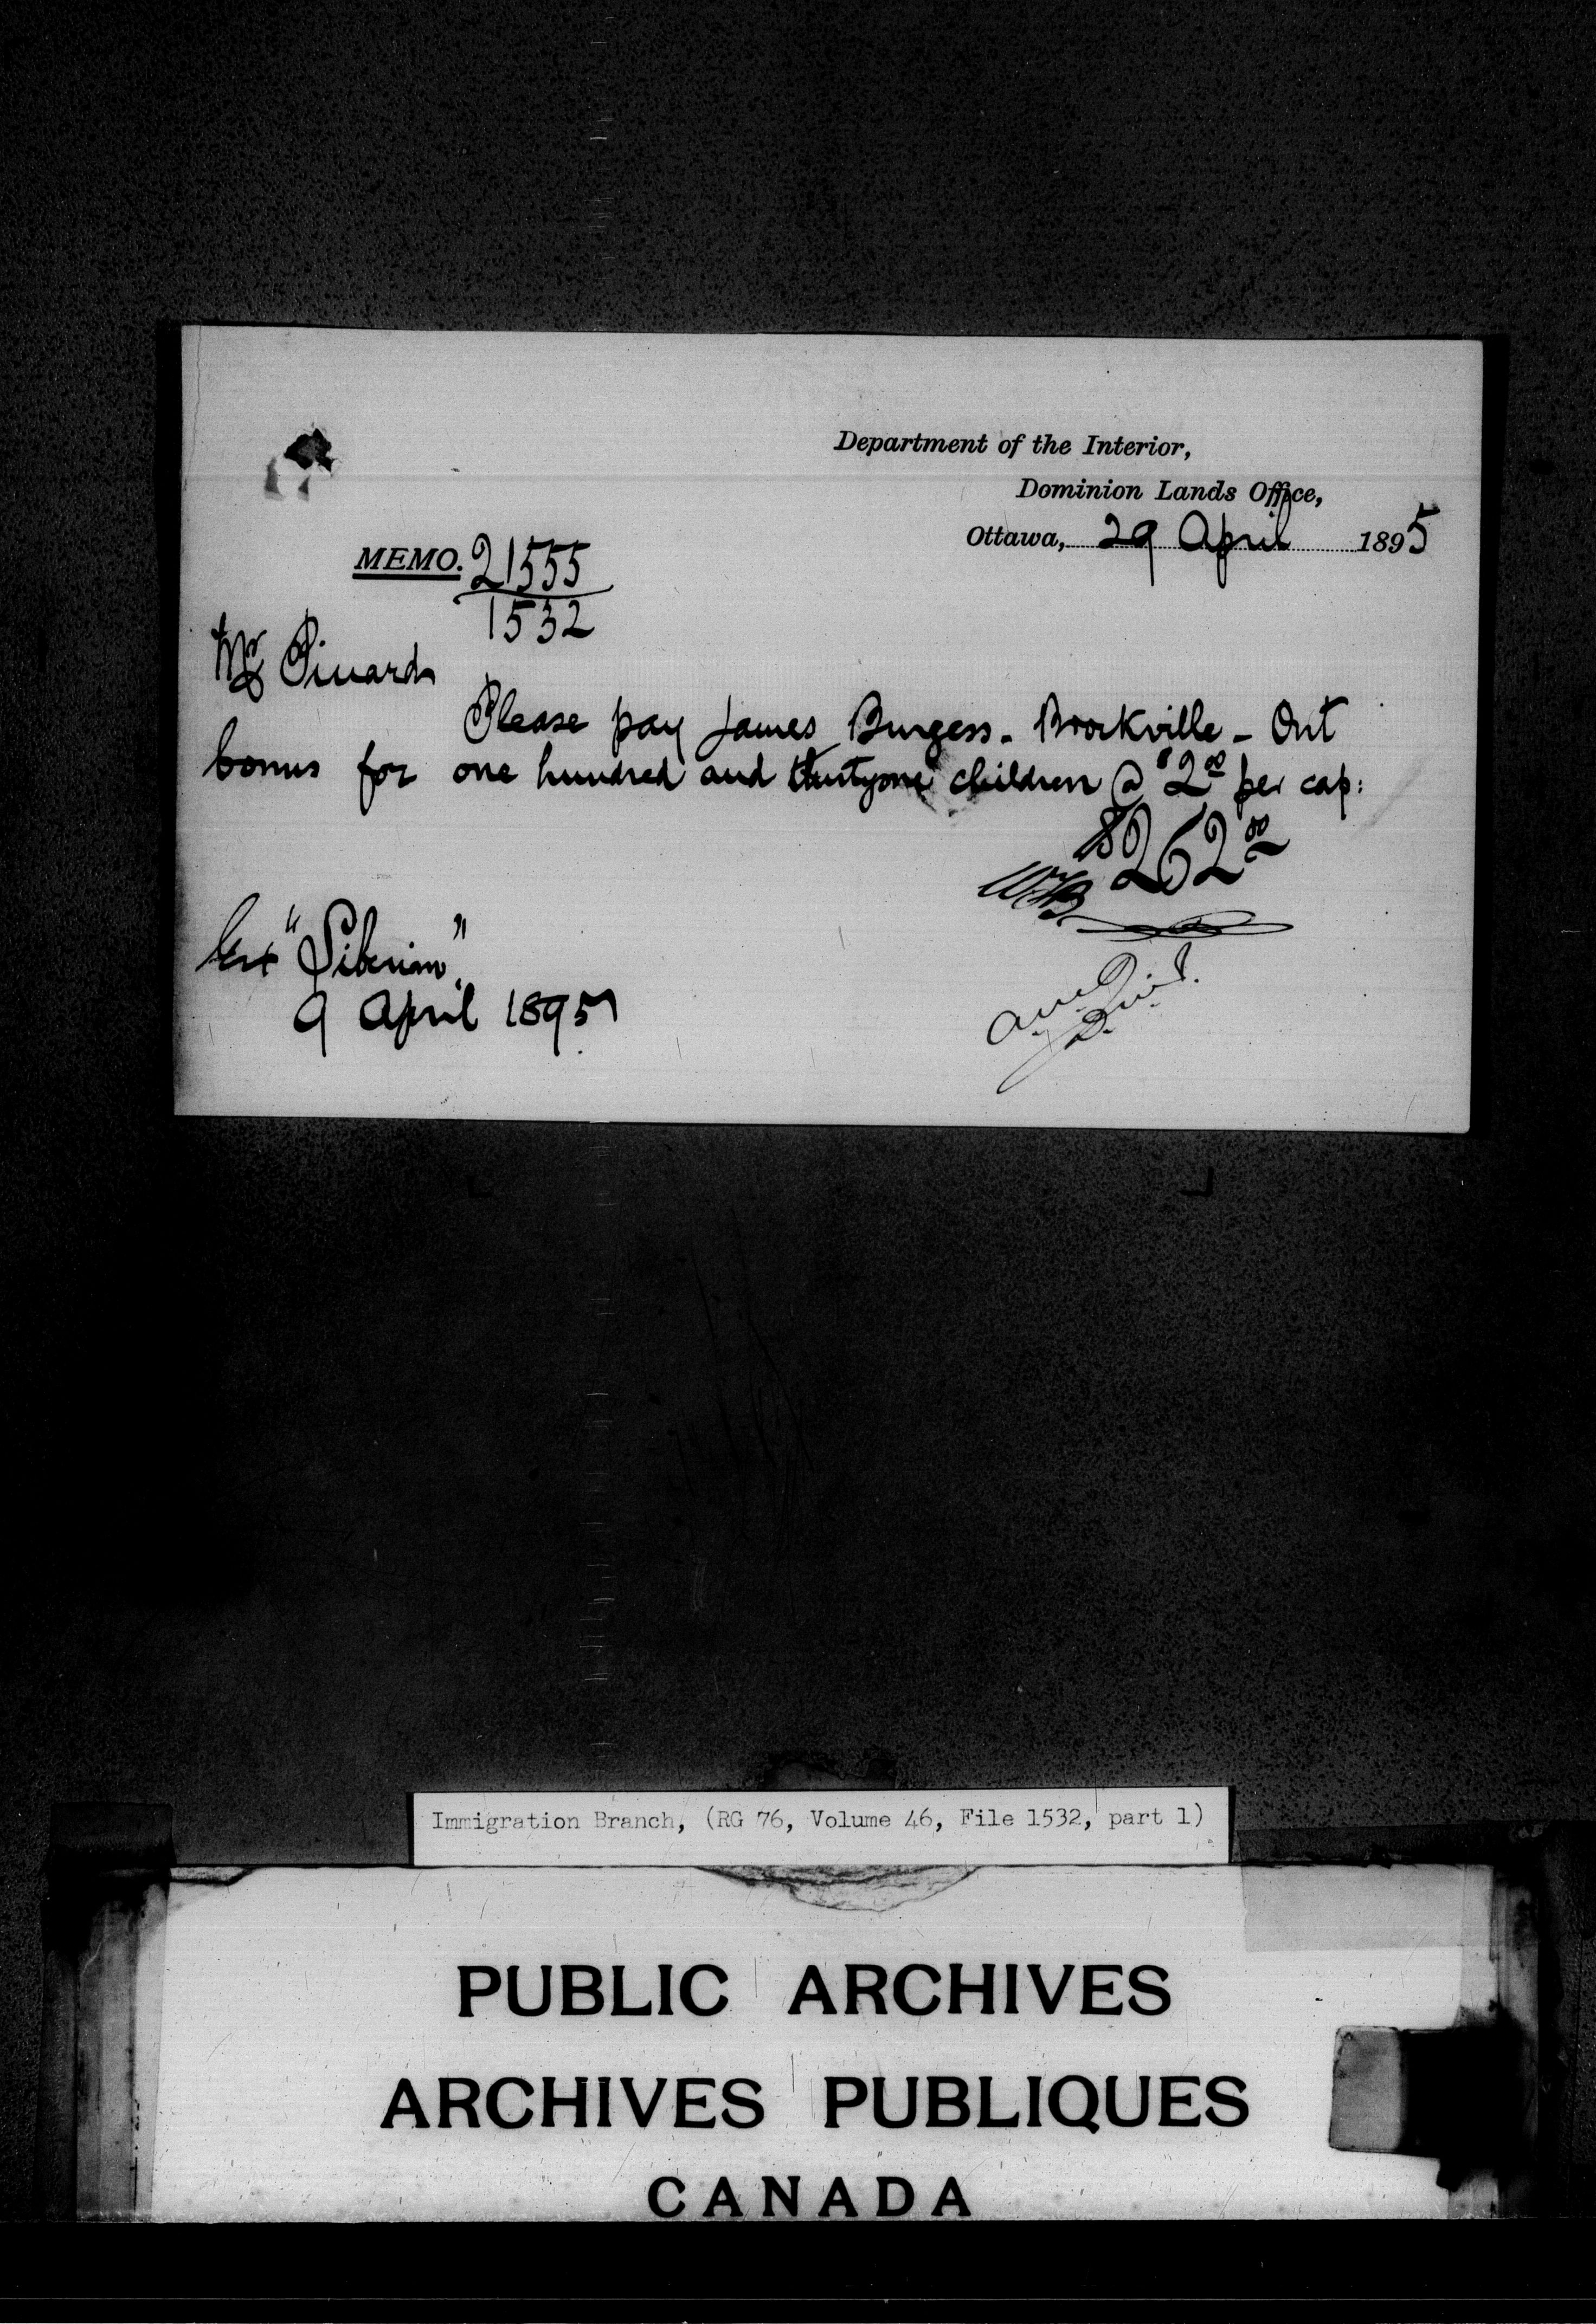 Department of the Interior,
Dominion Lands Office,
Ottawa, 29 April 1895
MEMO. 21555
1532
Mr Pinard
Please pay James Burgess - Brockville - Ont
bonus for one hundred and thirtyone children @ $2.00 per cap:
$262.00
Ext "Siberian"
9 April 1895
Immigration Branch, (RG 76, Volume 46, File 1532, part 1)
PUBLIC ARCHIVES
ARCHIVES PUBLIQUES
CANADA